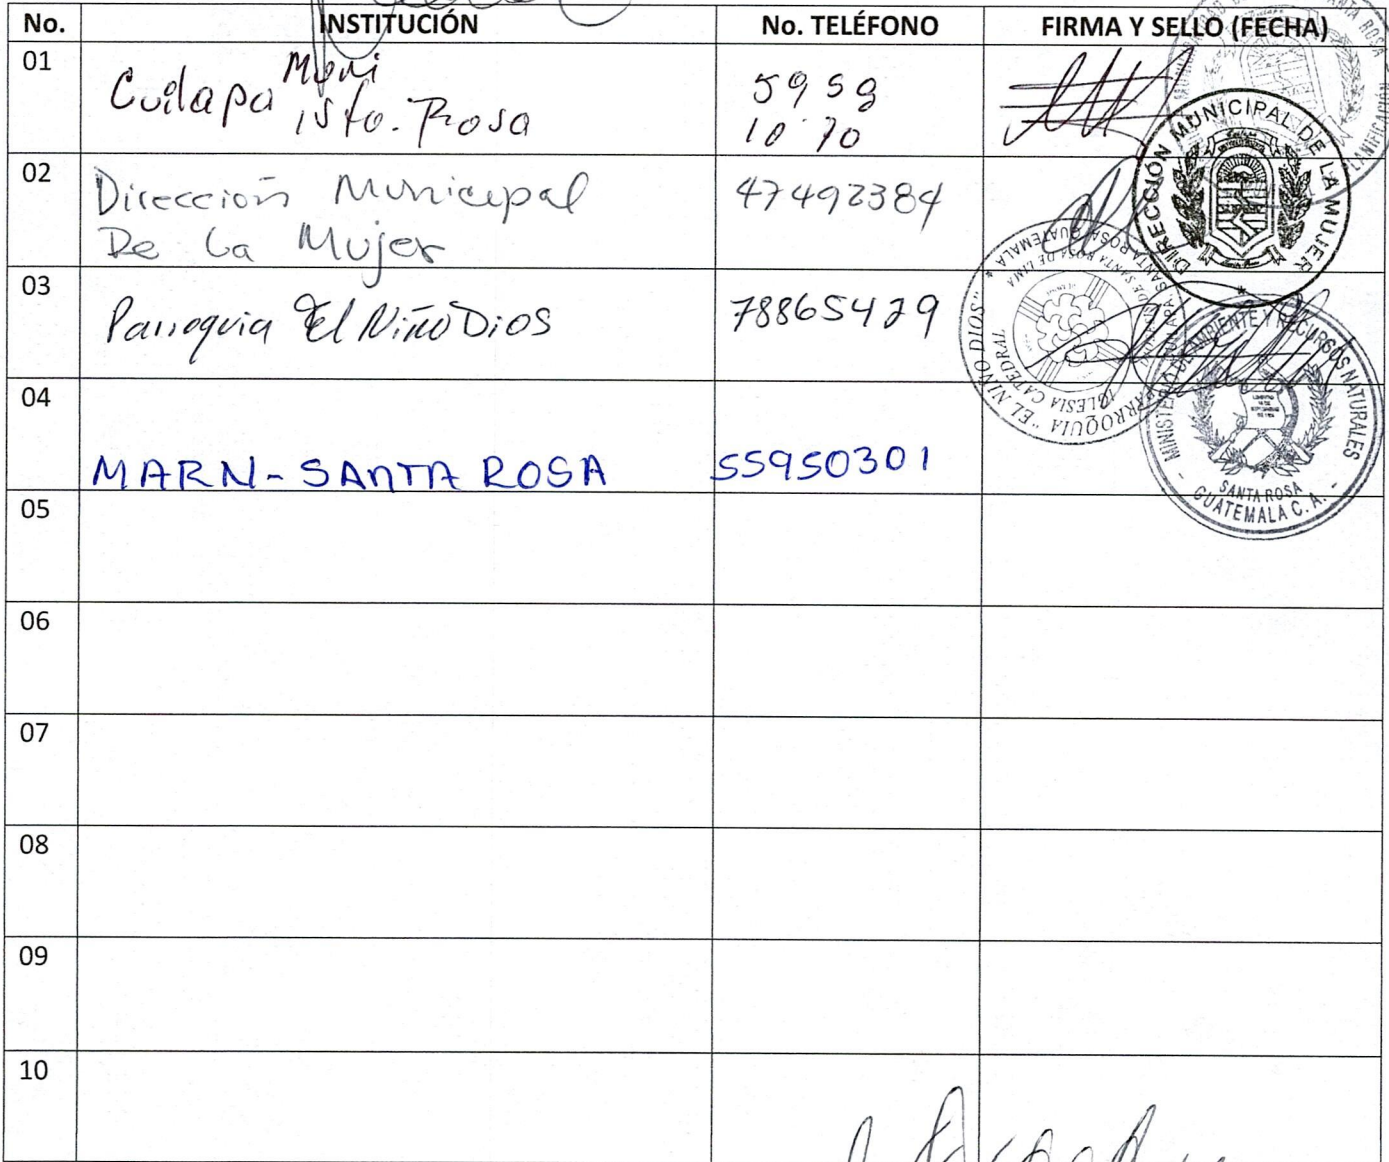 No. INSTITUCIÓN No. TELÉFONO FIRMA Y SELLO (FECHA)
01 Cuilapa Muni
Sta. Rosa
5959
1070
02 Dirección Municipal
De La Mujer
47492384
DIRECCIÓN MUNICIPAL DE LA MUJER
03 Parroquia El Niño Dios 78865429
PARROQUIA "EL NIÑO DIOS"
IGLESIA CATEDRAL
04
MARN-SANTA ROSA 55950301
MINISTERIO DE AMBIENTE Y RECURSOS NATURALES
SANTA ROSA
GUATEMALA C. A.
05
06
07
08
09
10